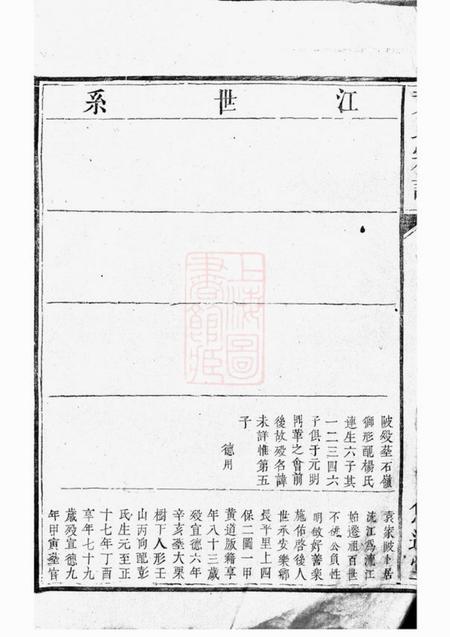 江世系
陂殁塟石嶺
獅形配楊氏
連生六子其
一二三四六
子俱于元明
鬥革之會前
後故殁名諱
未詳惟第五
子
德用
袁家陂卜居
沇江爲沇江
始遷祖百世
不祧公貞性
明敏好善樂
施佑啓後人
世承安樂鄉
長平里上四
保二圖一甲
黄道版籍享
年八十三歲
殁宣德六年
辛亥塟大栗
樹下人形壬
山丙向配彭
氏生元至正
十七年丁酉
享年七十九
歲殁宣德九
年甲寅塟官
上海圖書館藏